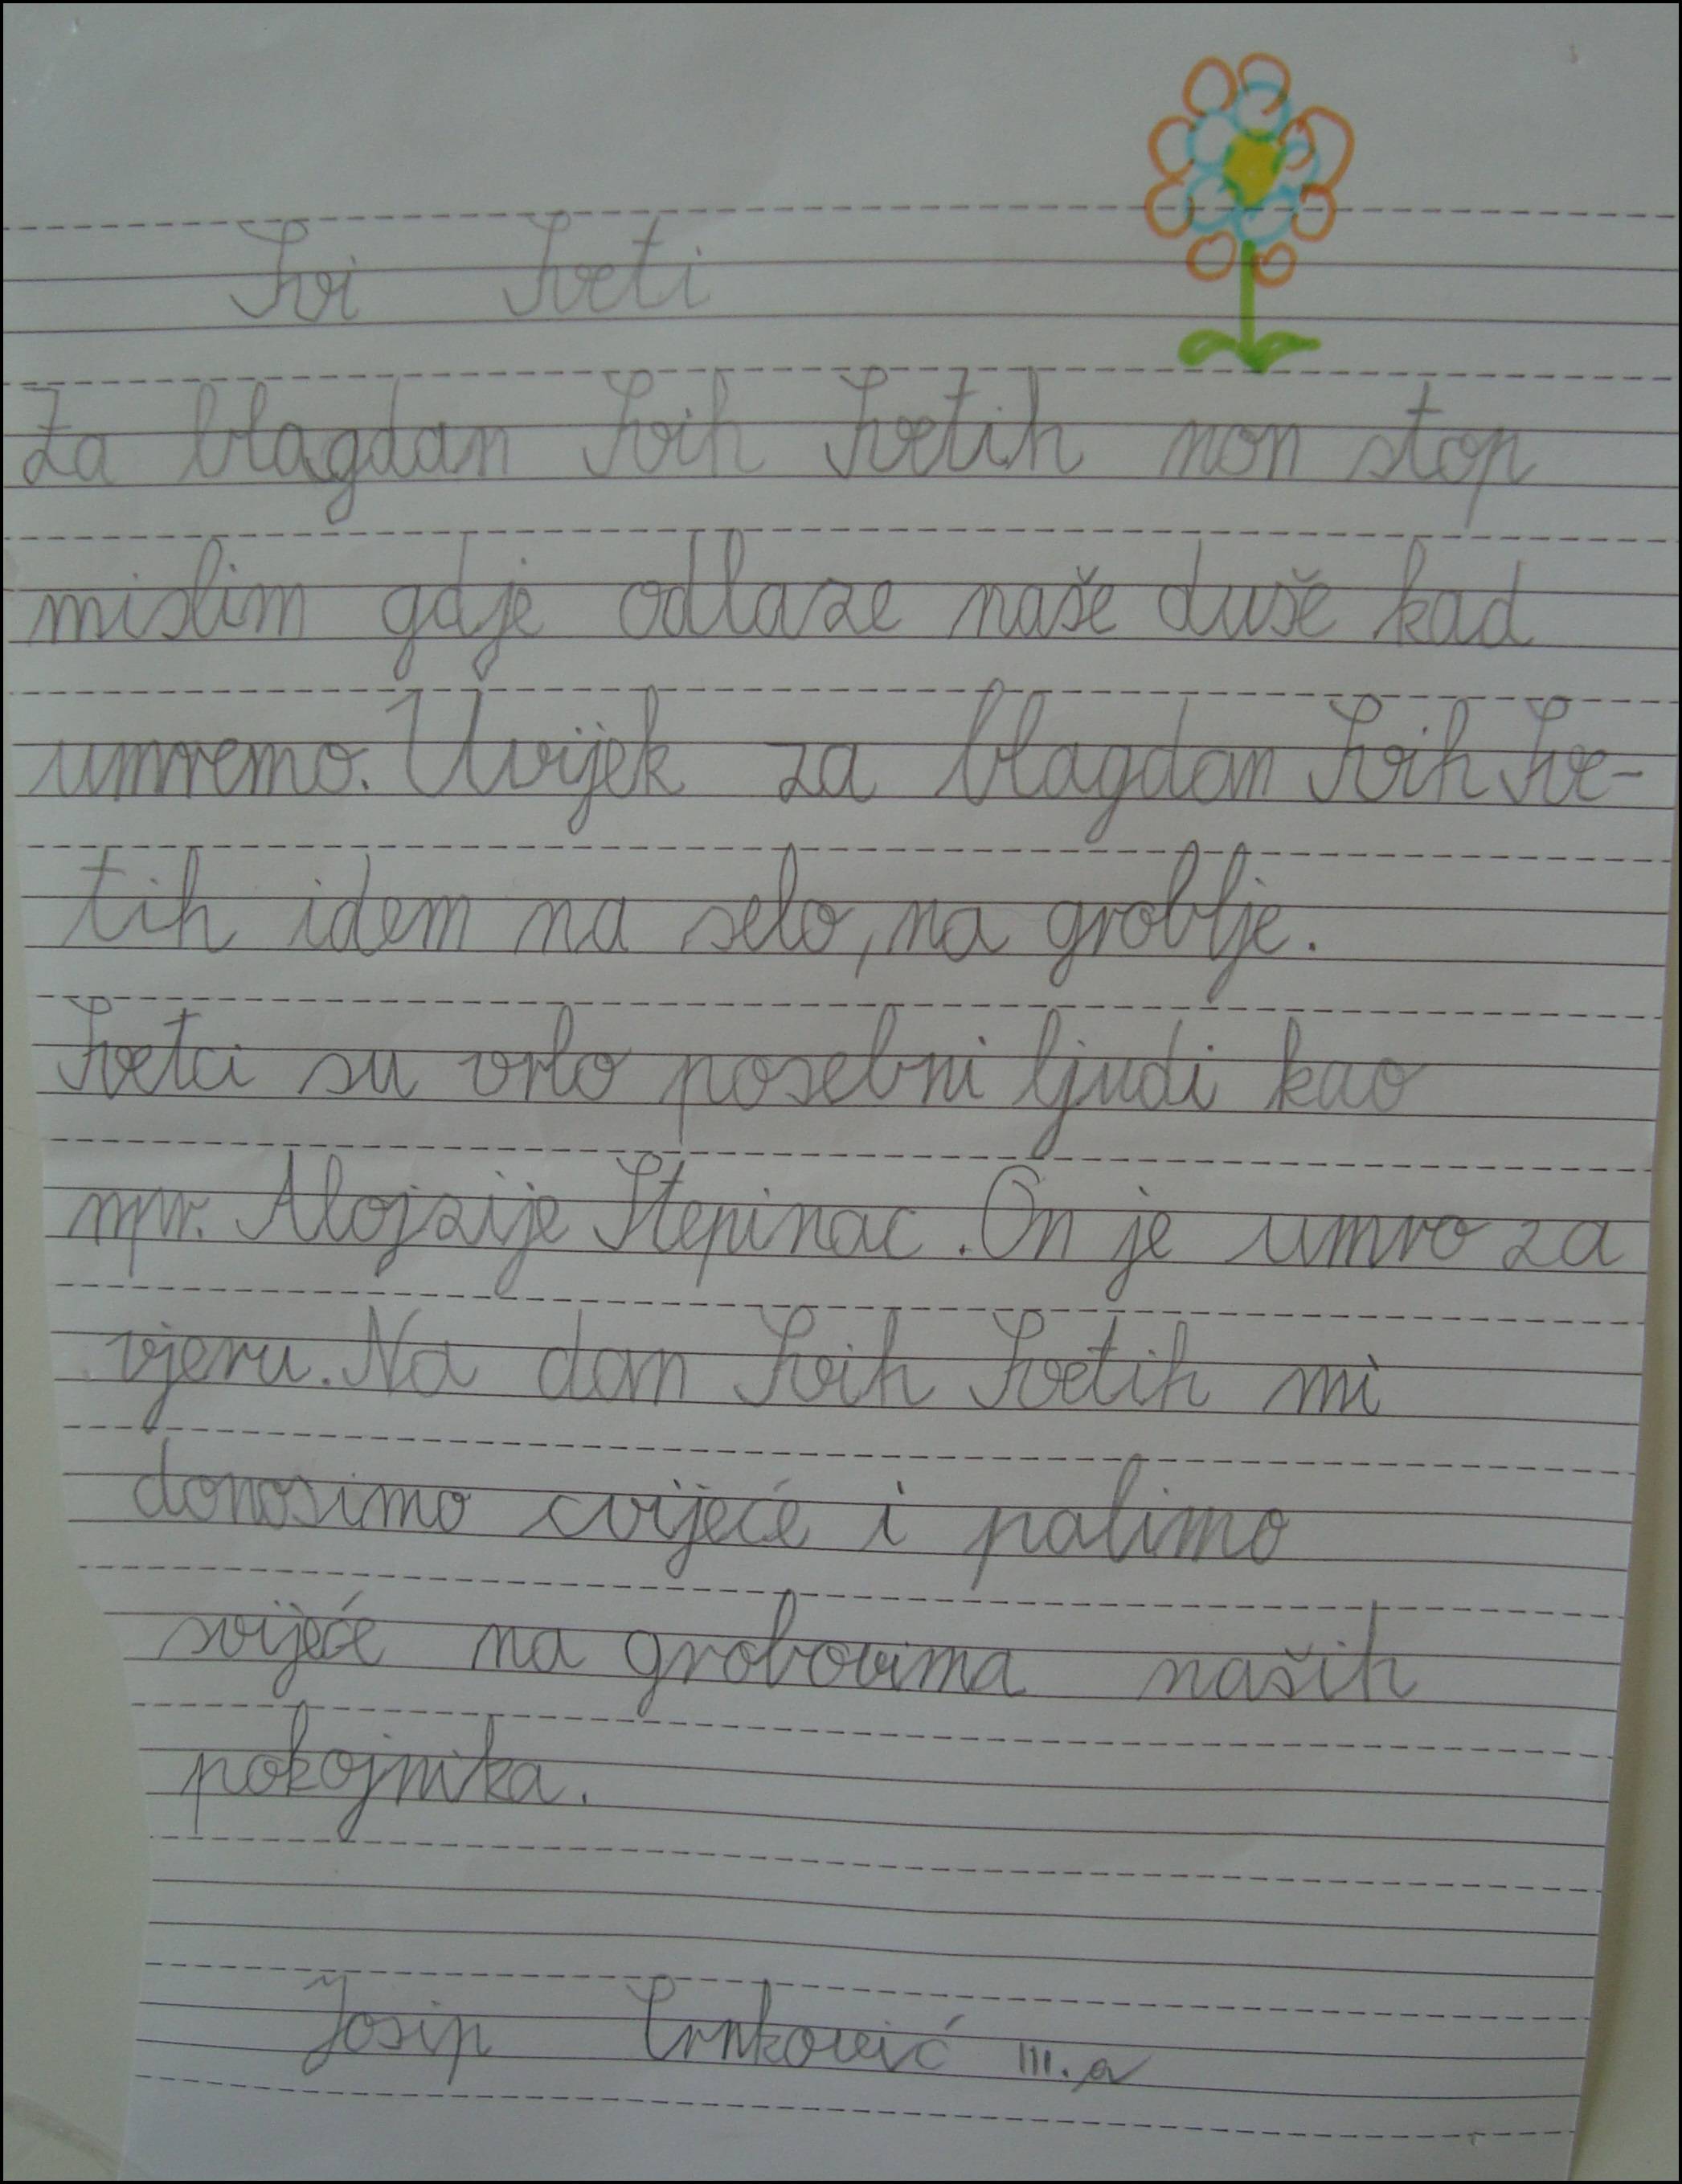 Svi Sveti
Za blagdan Svih Svetih non stop
mislim gdje odlaze naše duše kad
umremo. Uvijek za blagdan Svih Sve-
tih idem na selo, na groblje.
Svetci su vrlo posebni ljudi kao
npr. Alojzije Stepinac. On je umro za
vjeru. Na dan Svih Svetih mi
donosimo cvijeće i palimo
svijeće na grobovima naših
pokojnika.
Josip Crnković III. a